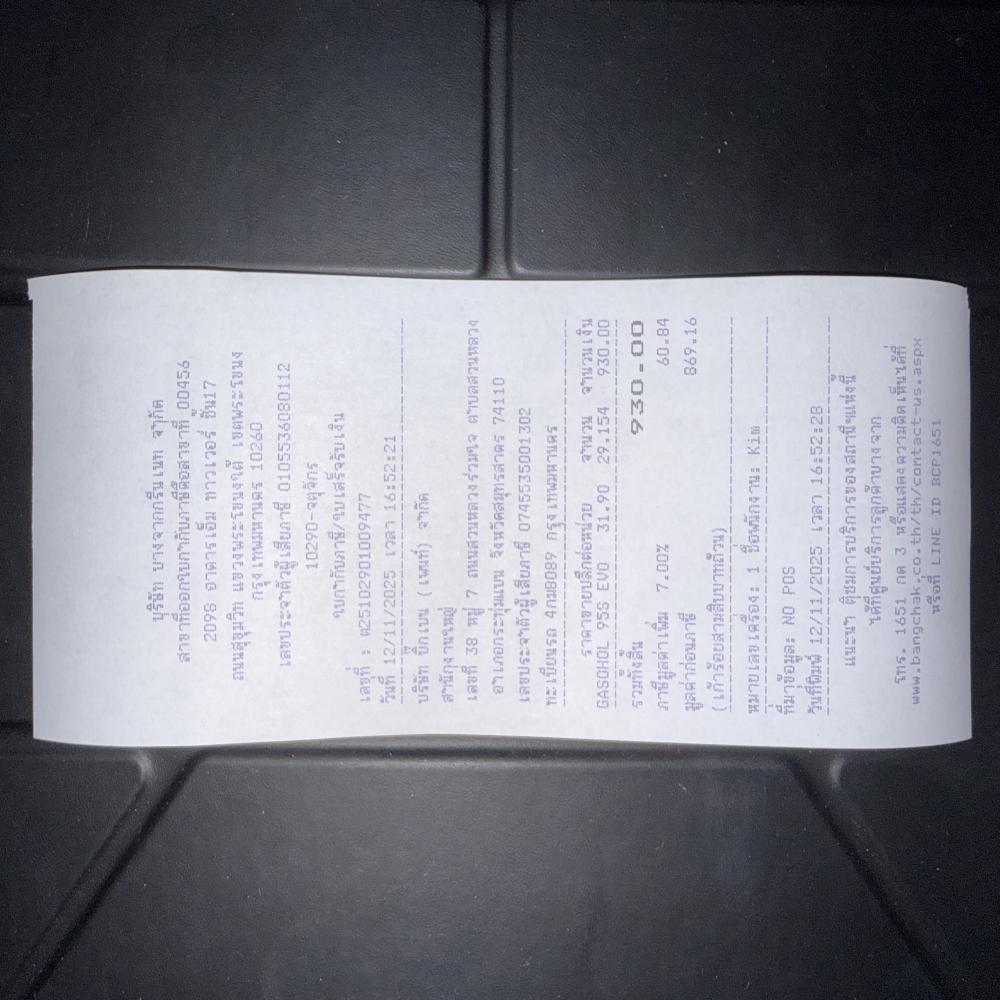 บริษัท บางจากกรีนเนท จำกัด
สาขาที่ออกใบกำกับภาษีคือสาขาที่ 00456
2098 อาคารเอ็ม ทาวเวอร์ ชั้น17
ถนนสุขุมวิท แขวงพระโขนงใต้ เขตพระโขนง
กรุงเทพมหานคร 10260
เลขประจำตัวผู้เสียภาษี 0105536080112
10290-จตุจักร
ใบกำกับภาษี/ใบเสร็จรับเงิน
เลขที่ : ต25102901009477
วันที่ 12/11/2025 เวลา 16:52:21
บริษัท บิ๊กเบน (เพนท์) จำกัด
สำนักงานใหญ่
เลขที่ 38 หมู่ 7 ถนนสวนหลวงร่วมใจ ตำบลสวนหลวง
อำเภอกระทุ่มแบน จังหวัดสมุทรสาคร 74110
เลขประจำตัวผู้เสียภาษี 0745535001302
ทะเบียนรถ 4กม8089 กรุงเทพมหานคร
ราคาขายปลีกต่อหน่วย จำนวน จำนวนเงิน
GASOHOL 95S EVO 31.90 29.154 930.00
รวมทั้งสิ้น 930.00
ภาษีมูลค่าเพิ่ม 7.00% 60.84
มูลค่าก่อนภาษี 869.16
(เก้าร้อยสามสิบบาทถ้วน)
หมายเลขเครื่อง: 1 ชื่อพนักงาน: Kim
ที่มาข้อมูล: NO POS
วันที่พิมพ์ 12/11/2025 เวลา 16:52:28
แนะนำ ติชมการบริการของสถานีฯแห่งนี้
ได้ที่ศูนย์บริการลูกค้าบางจาก
โทร. 1651 กด 3 หรือแสดงความคิดเห็นได้ที่
www.bangchak.co.th/th/contact-us.aspx
หรือที่ LINE ID BCP1651